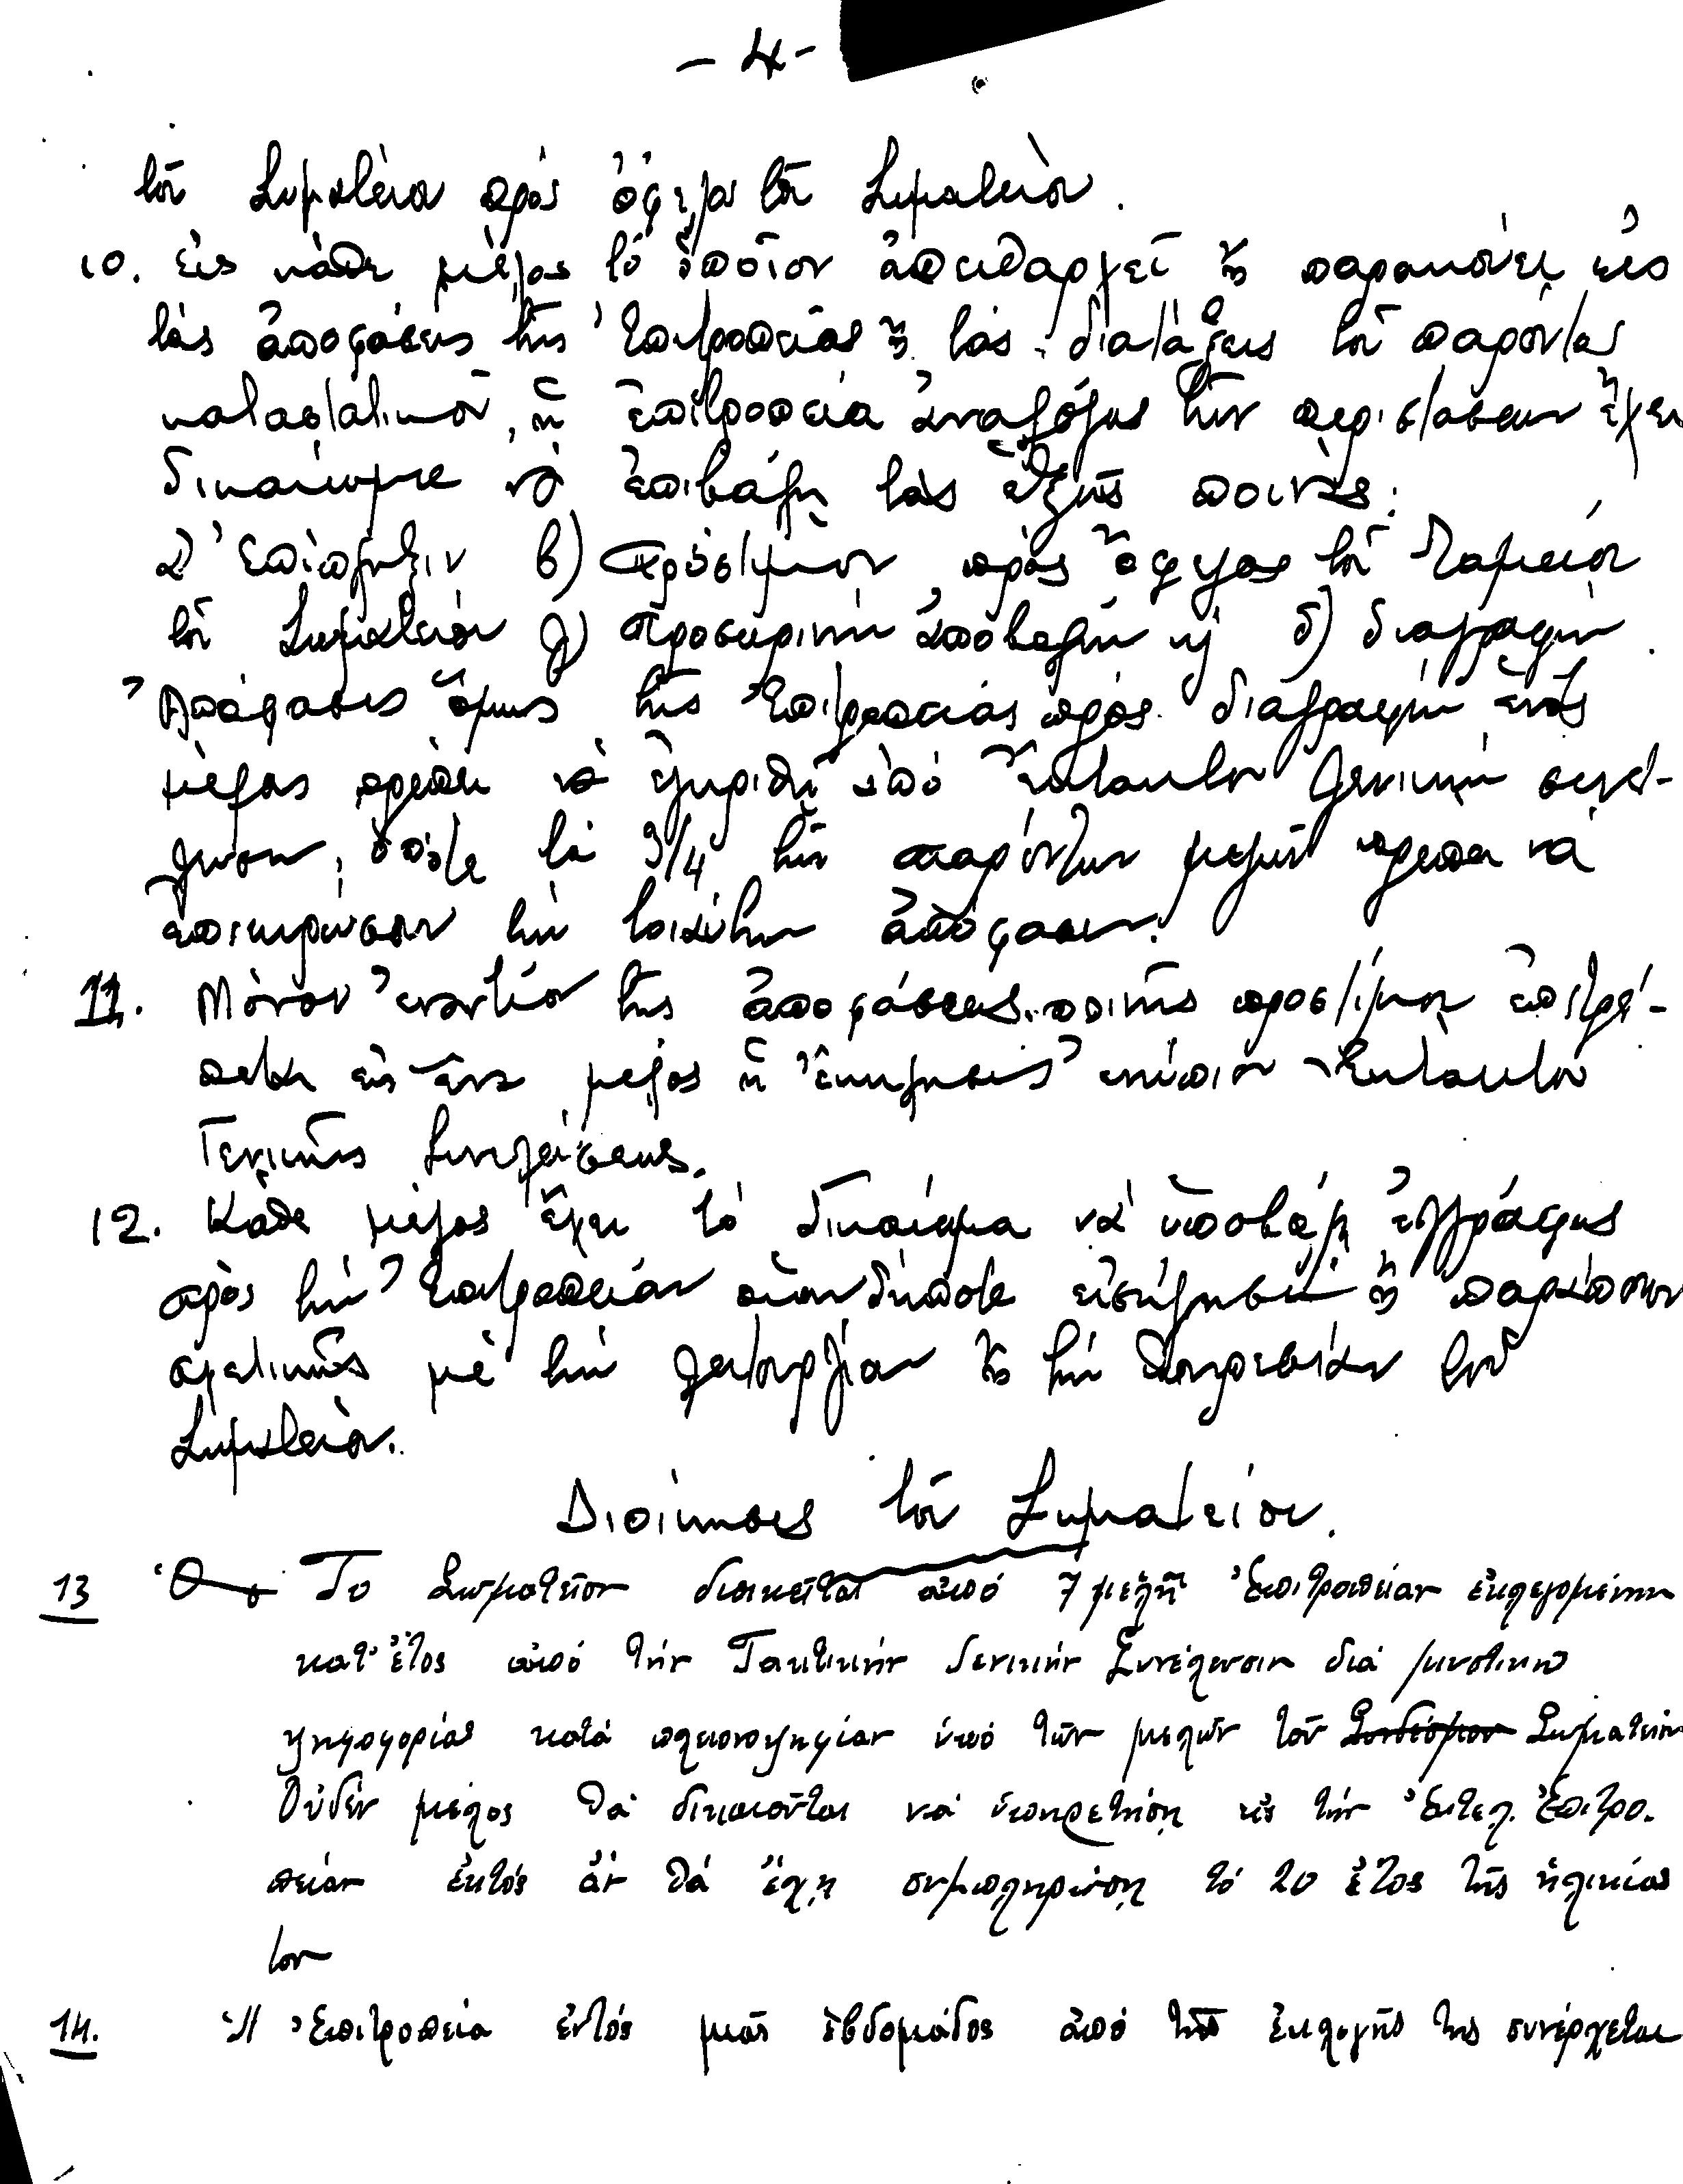 - 4 -
τοῦ Σωματείου πρὸς ὄφελος τοῦ Σωματείου.
10. Εἰς κάθε μέλος τὸ ὁποῖον ἀπειθαρχεῖ ἢ παρακούει εἰς
τὰς ἀποφάσεις τῆς Ἐπιτροπείας ἢ τὰς διατάξεις τοῦ παρόντος
καταστατικοῦ, ἡ ἐπιτροπεία ἀναλόγως τῶν περιστάσεων ἔχει
δικαίωμα νὰ ἐπιβάλῃ τὰς ἑξῆς ποινάς:
α) Ἐπίπληξιν β) πρόστιμον πρὸς ὄφελος τοῦ Ταμείου
τοῦ Σωματείου γ) προσωρινὴν ἀποβολὴν κ δ) διαγραφὴν.
Ἀπόφασις ὅμως τῆς Ἐπιτροπείας πρὸς διαγραφὴν ἑνὸς
μέλους πρέπει νὰ ἐγκριθῇ ὑπὸ ἔκτακτον Γενικὴν συνέ-
λευσιν, ὁπότε τὰ 3/4 τῶν παρόντων μελῶν πρέπει νὰ
ἐπικυρώσουν τὴν τοιαύτην ἀπόφασιν.
11. Μόνον ἐναντίον τῆς ἀποφάσεως ποινῆς προστίμου ἐπιτρέ-
πεται εἰς ἕνα μέλος ἡ ἔκκλησις ἐνώπιον Ἐκτάκτου
Γενικῆς Συνελεύσεως.
12. Κάθε μέλος ἔχει τὸ δικαίωμα νὰ ὑποβάλῃ ἐγγράφως
πρὸς τὴν Ἐπιτροπείαν οἱανδήποτε εἰσήγησιν ἢ παράπονον
σχετικῶς μὲ τὴν λειτουργίαν ἢ τὴν ὑπηρεσίαν τοῦ
Σωματείου.
Διοίκησις τοῦ Σωματείου.
13 Το Σωματεῖον διοικεῖται ἀπό 7μελῆ Ἐπιτροπείαν ἐκλεγομένην
κατ' ἔτος ἀπό τήν Τακτικήν Γενικήν Συνέλευσιν διά μυστικῆς
ψηφοφορίας κατά πλειονοψηφίαν ὑπό τῶν μελῶν τοῦ Συνδέσμου Σωματείου
Οὐδέν μέλος θά δικαιοῦται νά ὑπηρετήσῃ εἰς τήν Ἐκτελ. Ἐπιτρο-
πείαν ἐκτός ἄν θά ἔχῃ συμπληρώσῃ τό 20 ἔτος τῆς ἡλικίας
του
14. Ἡ Ἐπιτροπεία ἐντός μιᾶς ἑβδομάδος ἀπό τῆς ἐκλογῆς της συνέρχεται